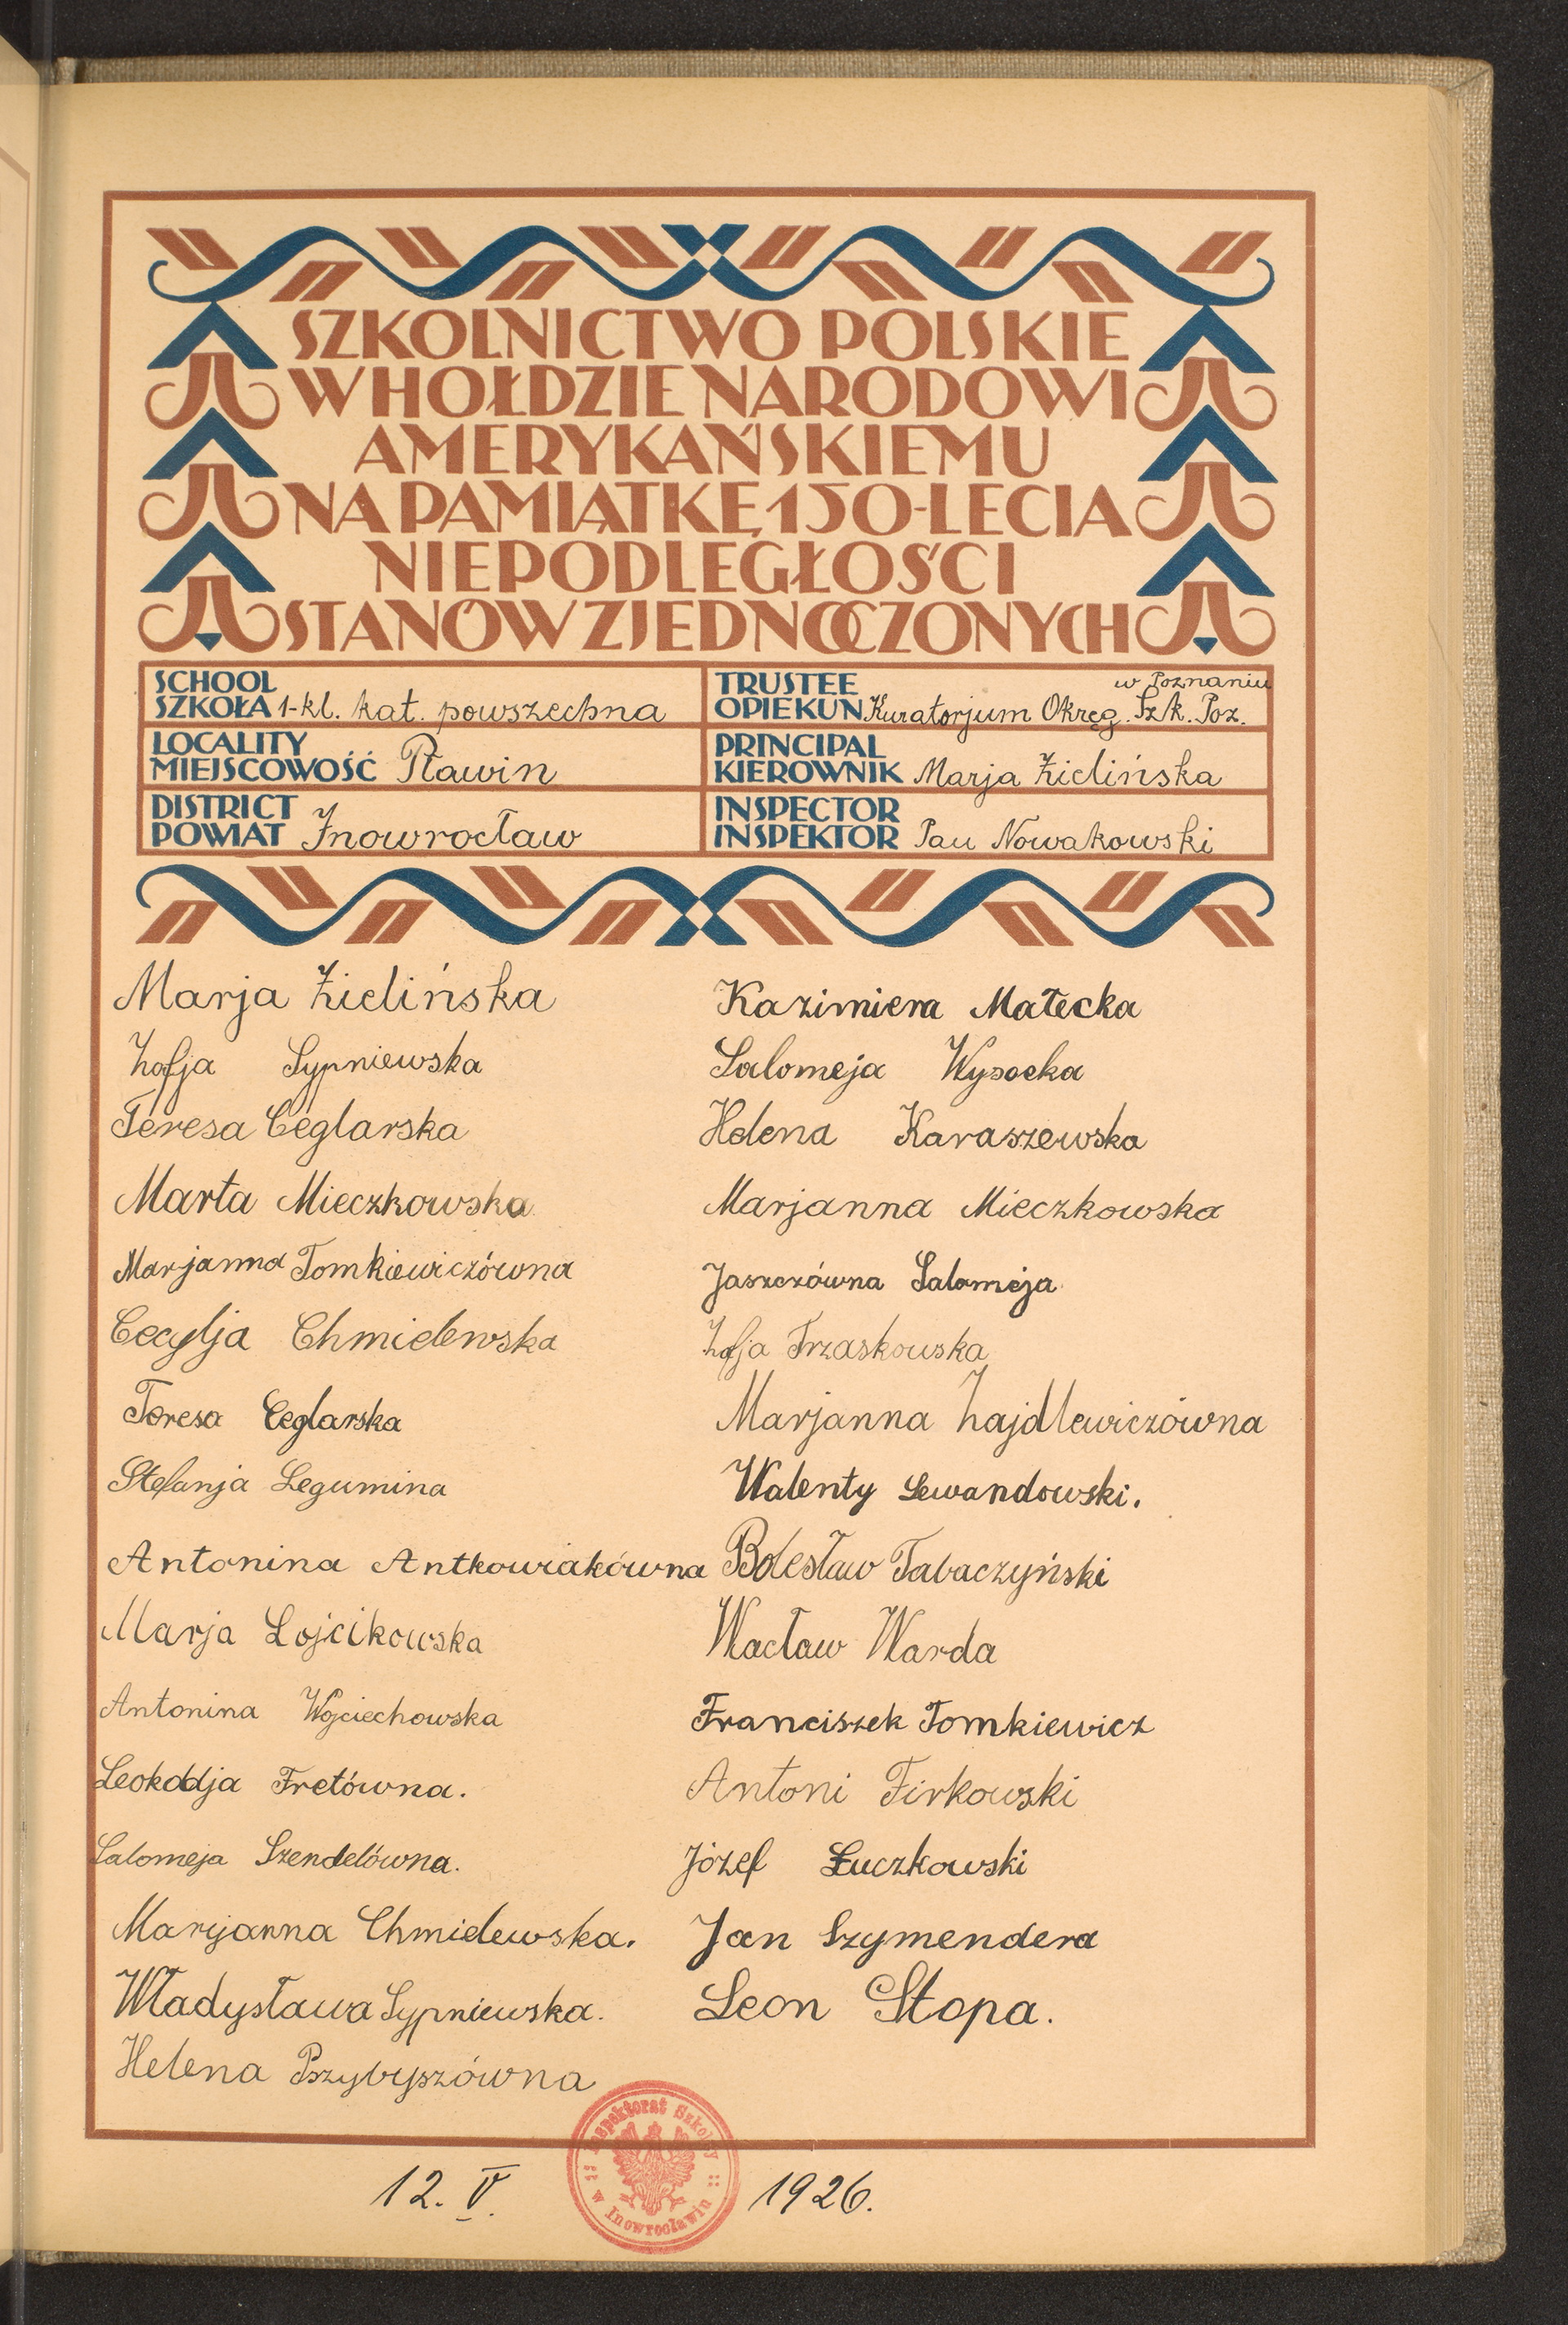 SZKOLNICTWO POLSKIE
W HOŁDZIE NARODOWI
AMERYKAŃSKIEMU
NA PAMIĄTKĘ 150-LECIA
NIEPODLEGŁOŚCI
STANÓW ZJEDNOCZONYCH
SCHOOL
SZKOŁA 1-kl. kat. powszechna
TRUSTEE w Poznaniu
OPIEKUN Kuratorjum Okręg. Szk. Poz.
LOCALITY
MIEJSCOWOŚĆ Pławin
PRINCIPAL
KIEROWNIK Marja Zielińska
DISTRICT
POWIAT Inowrocław
INSPECTOR
INSPEKTOR Pan Nowakowski
Marja Zielińska
Zofja Sypniewska
Teresa Ceglarska
Marta Mieczkowska
Marjanna Tomkiewiczówna
Cecylja Chmielewska
Teresa Ceglarska
Stefanja Legumina
Antonina Antkowiakówna
Marja Lojcikowska
Antonina Wojciechowska
Leokadja Fretówna.
Salomeja Szendelówna.
Maryjanna Chmielewska.
Władysława Sypniewska.
Helena Pszybyszówna
Kazimiera Małecka
Salomeja Wysocka
Helena Karaszewska
Marjanna Mieczkowska
Jaszczówna Salomeja
Zofja Trzaskowska
Marjanna Zajdlewiczówna
Walenty Lewandowski.
Bolesław Tabaczyński
Wacław Warda
Franciszek Tomkiewicz
Antoni Firkowski
Józef Łuczkowski
Jan Szymendera
Leon Stopa.
Inspektorat Szkolny
w Inowrocławiu
12. V. 1926.